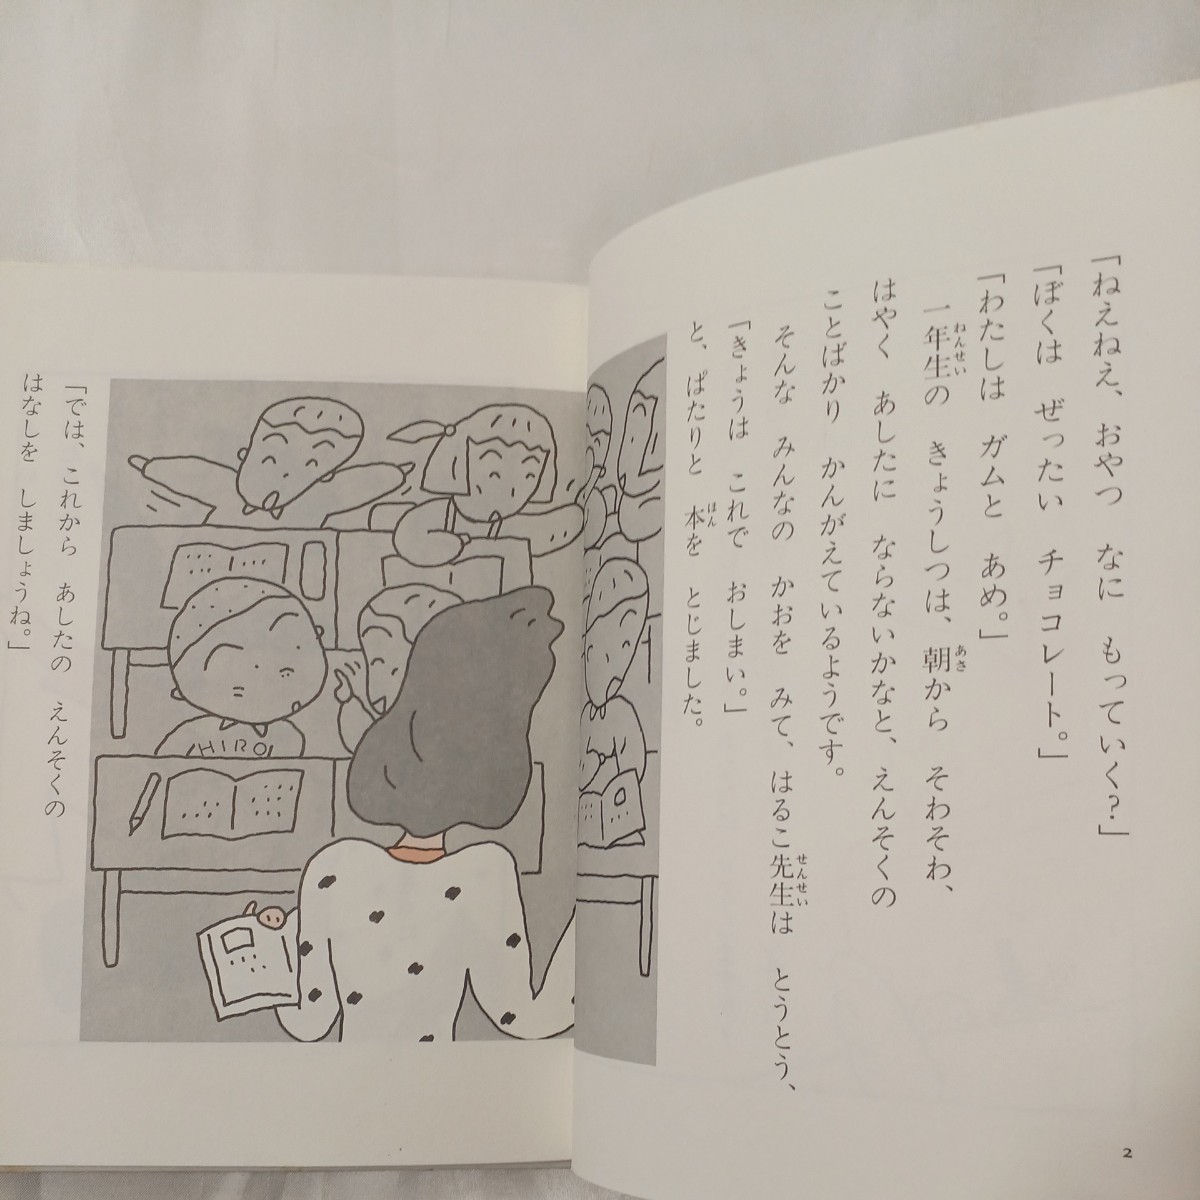 「ねえねえ、おやつ　なに　もっていく？」
「ぼくは　ぜったい　チョコレート。」
「わたしは　ガムと　あめ。」
一年生の　きょうしつは、朝から　そわそわ、
はやく　あしたに　ならないかなと、えんそくの
ことばかり　かんがえているようです。
そんな　みんなの　かおを　みて、はるこ先生は　とうとう、
「きょうは　これで　おしまい。」
と、ぱたりと　本を　とじました。
2
HIRO
「では、これから　あしたの　えんそくの
はなしを　しましょうね。」